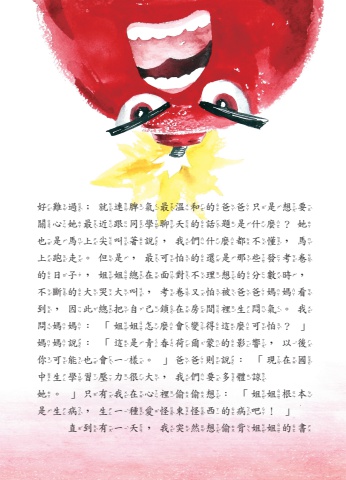 好難過：就連脾氣最溫和的爸爸只是想要
關心她最近跟同學聊天的話題是什麼？她
也是馬上尖叫著說，我們什麼都不懂，馬
上跑走。但是，最可怕的還是那些發考卷
的日子，姐姐總在面對不理想的分數時，
不斷的大哭大叫，考卷又怕被爸爸媽媽看
到，因此總把自己鎖在房間裡生悶氣。我
問媽媽：「姐姐怎麼會變得這麼可怕？」
媽媽說：「這是青春荷爾蒙的影響，以後
你可能也會一樣。」爸爸則說：「現在國
中生學習壓力很大，我們要多體諒
她。」只有我在心裡偷偷想：「姐姐根本
是生病，生一種愛怪東怪西的病吧！」
直到有一天，我突然想偷背姐姐的書